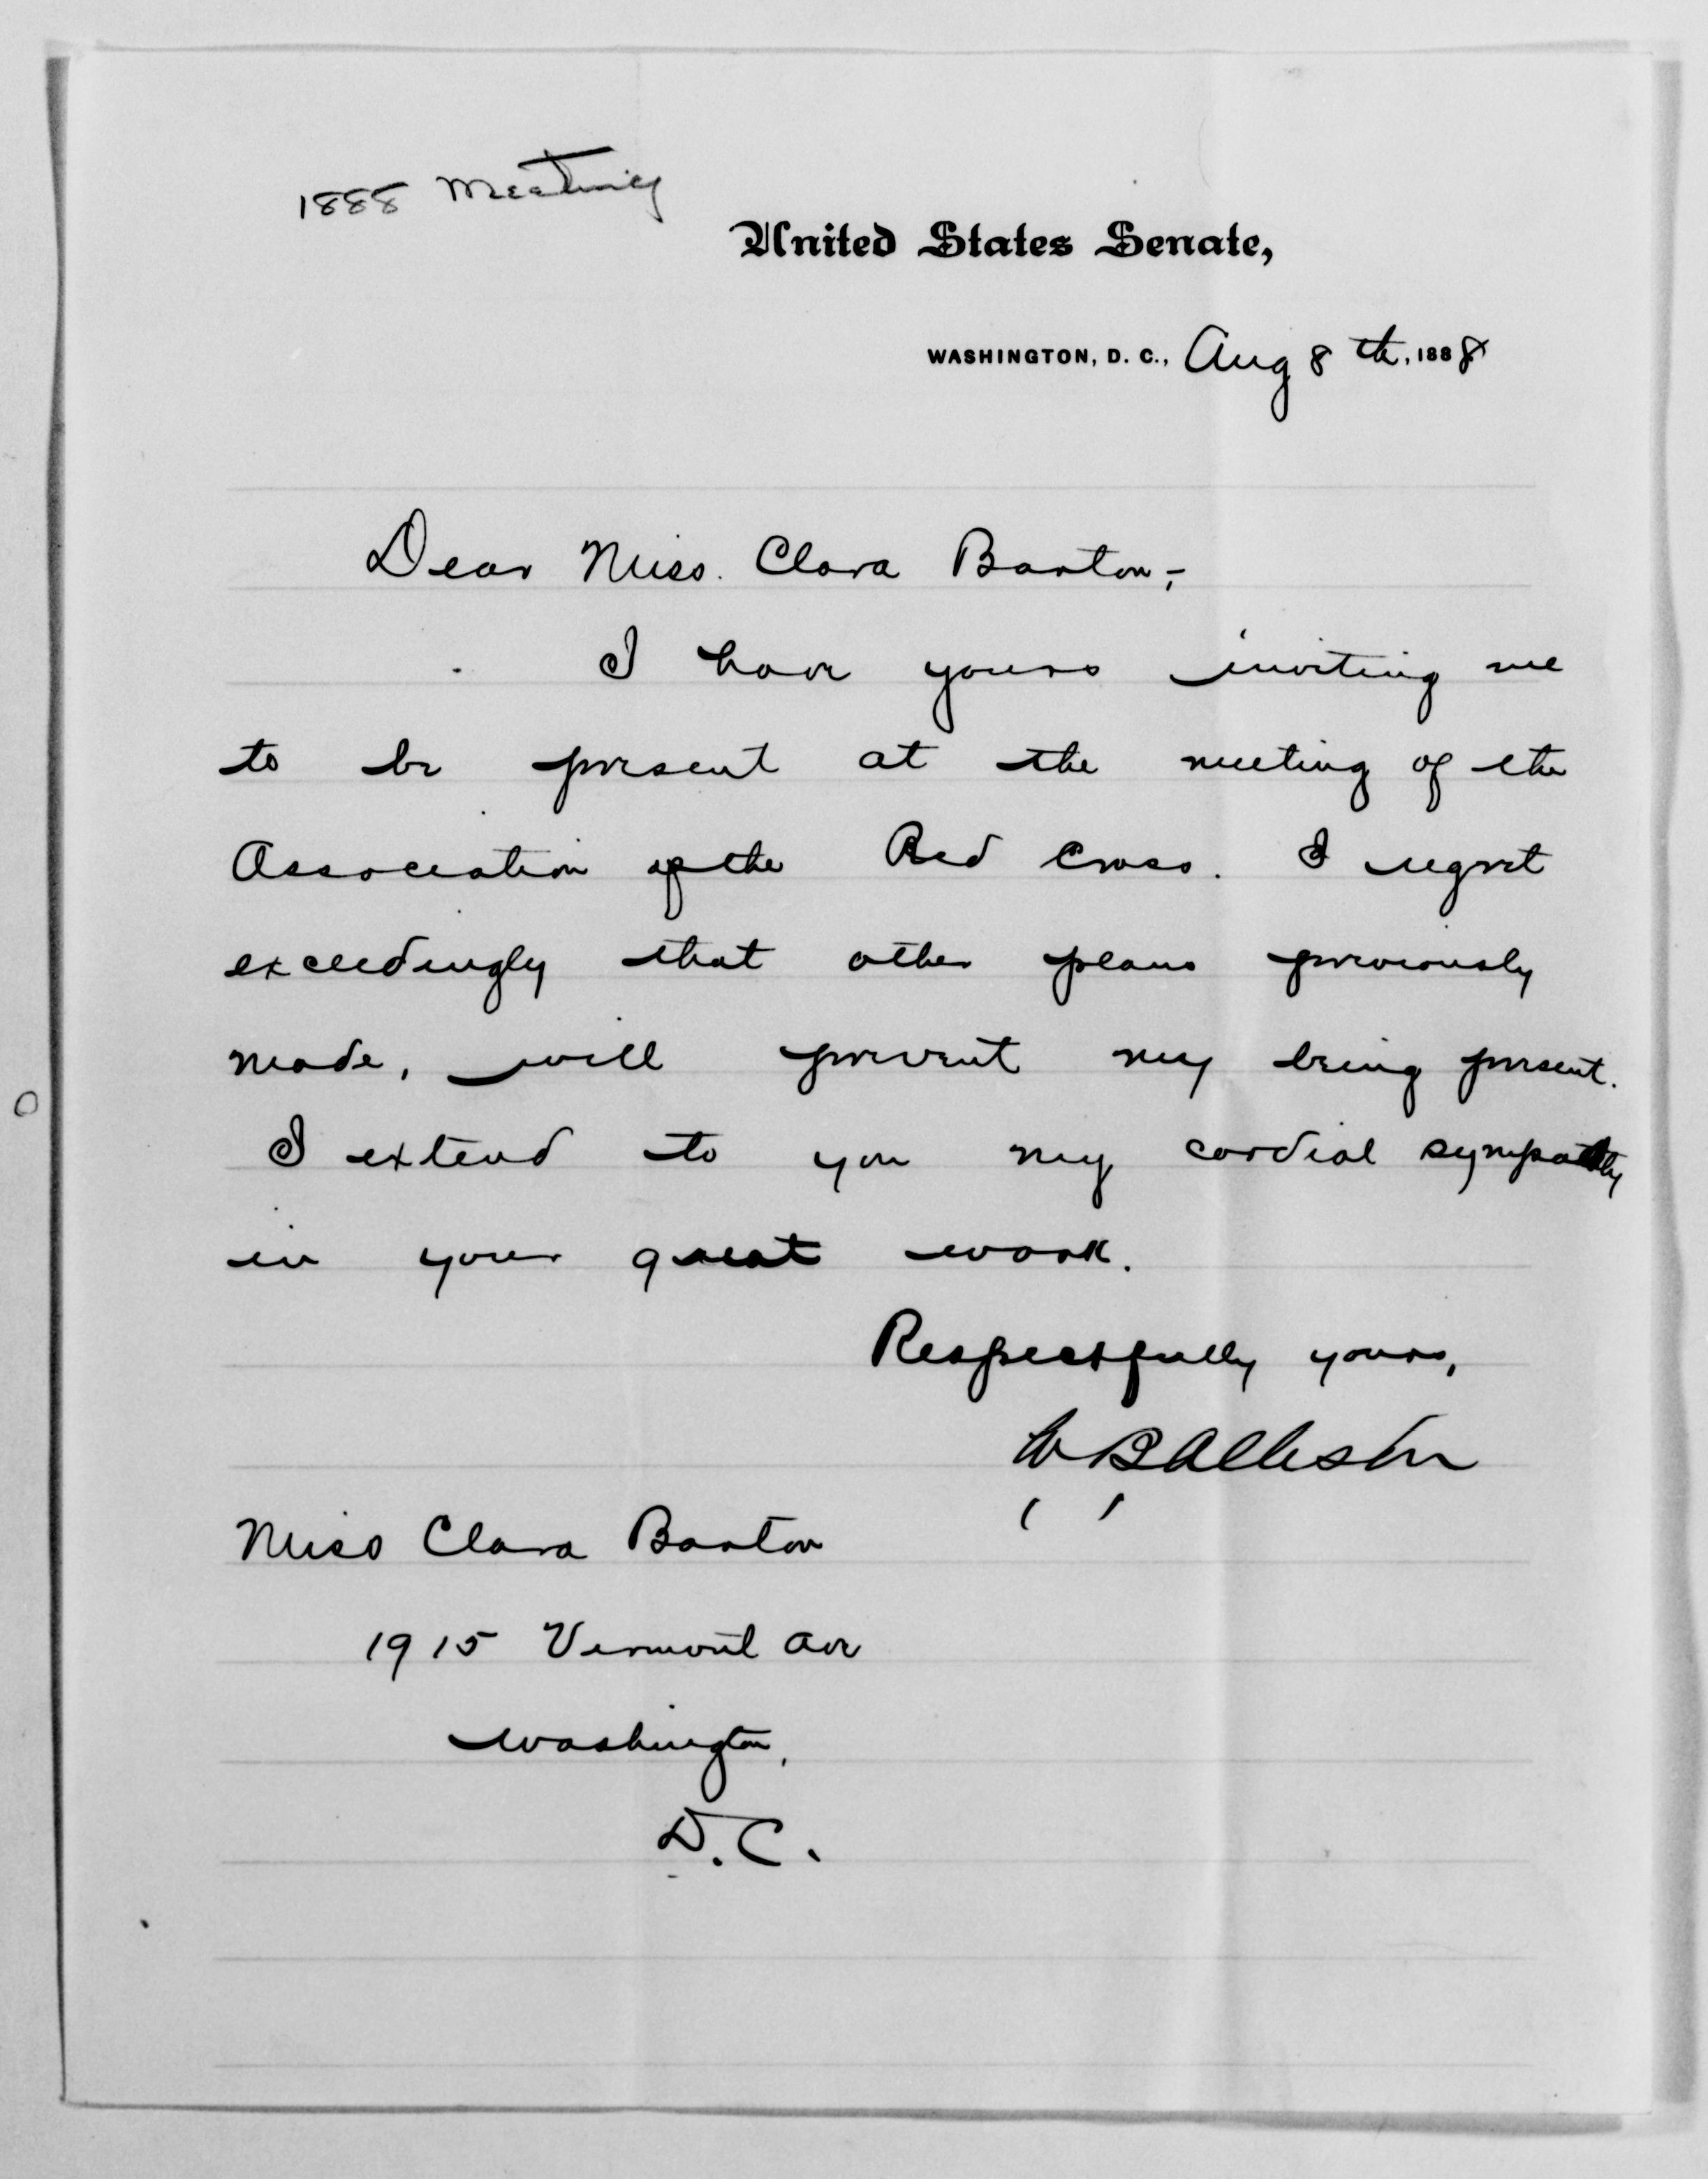 1888 Meeting
United States Senate,
WASHINGTON, D. C., Aug 8th, 1888
Dear Miss. Clara Barton,-
I have yours inviting me
to be present at the meeting of the
Association of the Red Cross. I regret
exceedingly that other plans previously
made, will prevent my being present.
I extend to you my cordial sympathy
in your great work.
Respectfully yours,
W B Allison
Miss Clara Barton
1915 Vermont Ave
Washington,
D.C.